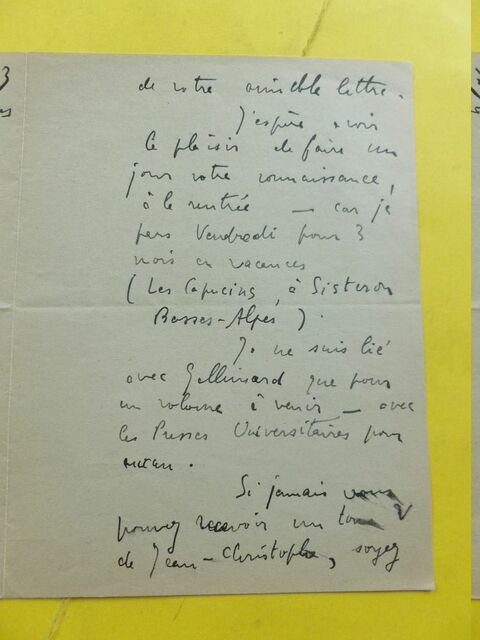 de votre aimable lettre.
J'espère avoir
le plaisir de faire un
jour votre connaissance,
à la rentrée — car je
pars Vendredi pour 3
mois en vacances
(Les Capucins, à Sisteron
Basses-Alpes).
Je ne suis lié
avec Gallimard que pour
un volume à venir — avec
les Presses Universitaires pour
aucun.
Si jamais vous
pouvez recevoir un
de Jean-Christophe, soyez
3